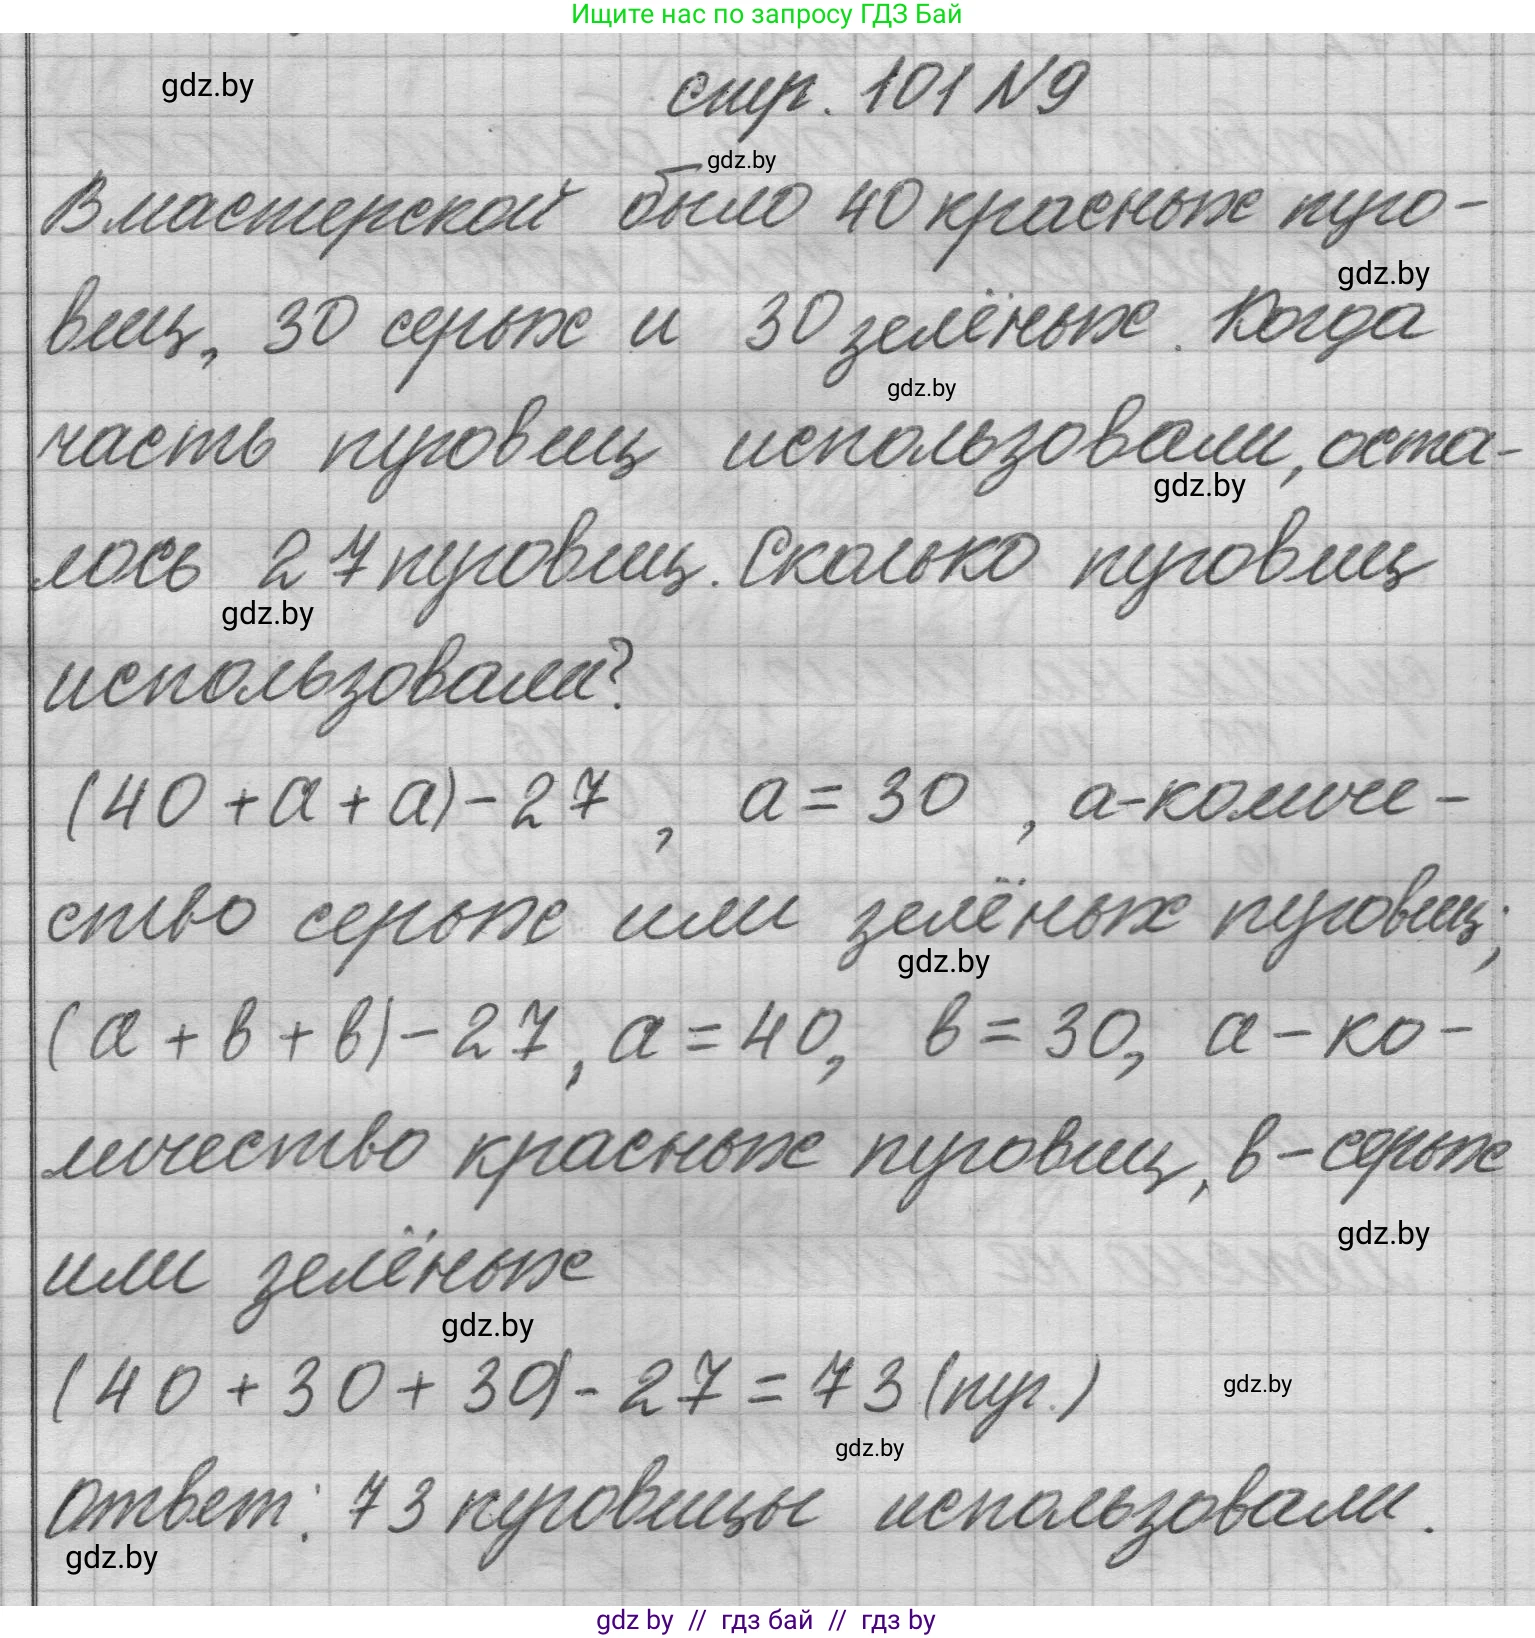 Ищите нас по запросу ГДЗ Бай
gdz.by
стр. 101 №9
gdz.by
В мастерской было 40 красных пуго-
gdz.by
виц, 30 серых и 30 зелёных. Когда
gdz.by
часть пуговиц использовали, оста-
gdz.by
лось 27 пуговиц. Сколько пуговиц
gdz.by
использовали?
(40 + а + а) - 27, а = 30, а - количе-
ство серых или зелёных пуговиц;
gdz.by
(а + в + в) - 27, а = 40, в = 30, а - ко-
личество красных пуговиц, в - серых
gdz.by
или зелёных
gdz.by
(40 + 30 + 30) - 27 = 73 (пуг.)
gdz.by
gdz.by
Ответ: 73 пуговицы использовали.
gdz.by
gdz by // гдз бай // гдз by